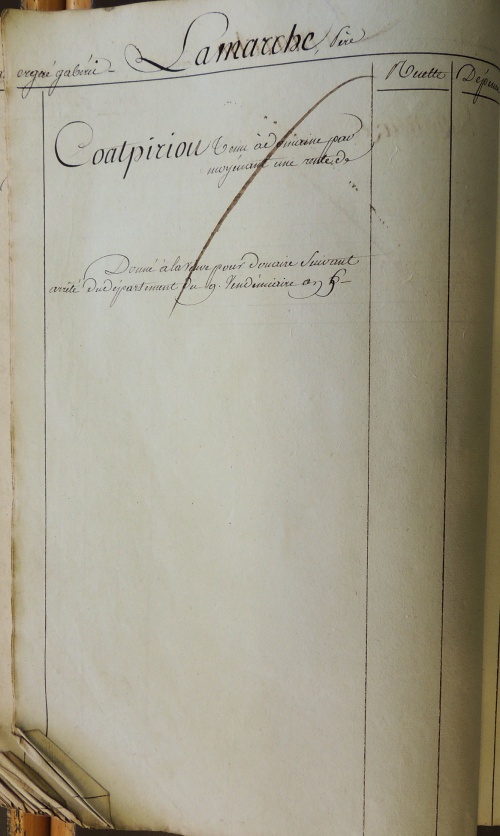 Lamarche, Père
ergué gabéric
Recette
Dépense
Coatpiriou Tenu à domaine par
moyénant une rente de
Donné à la veuve pour douaire Suivant
arrêté du département du 9. Vendémiaire an 5